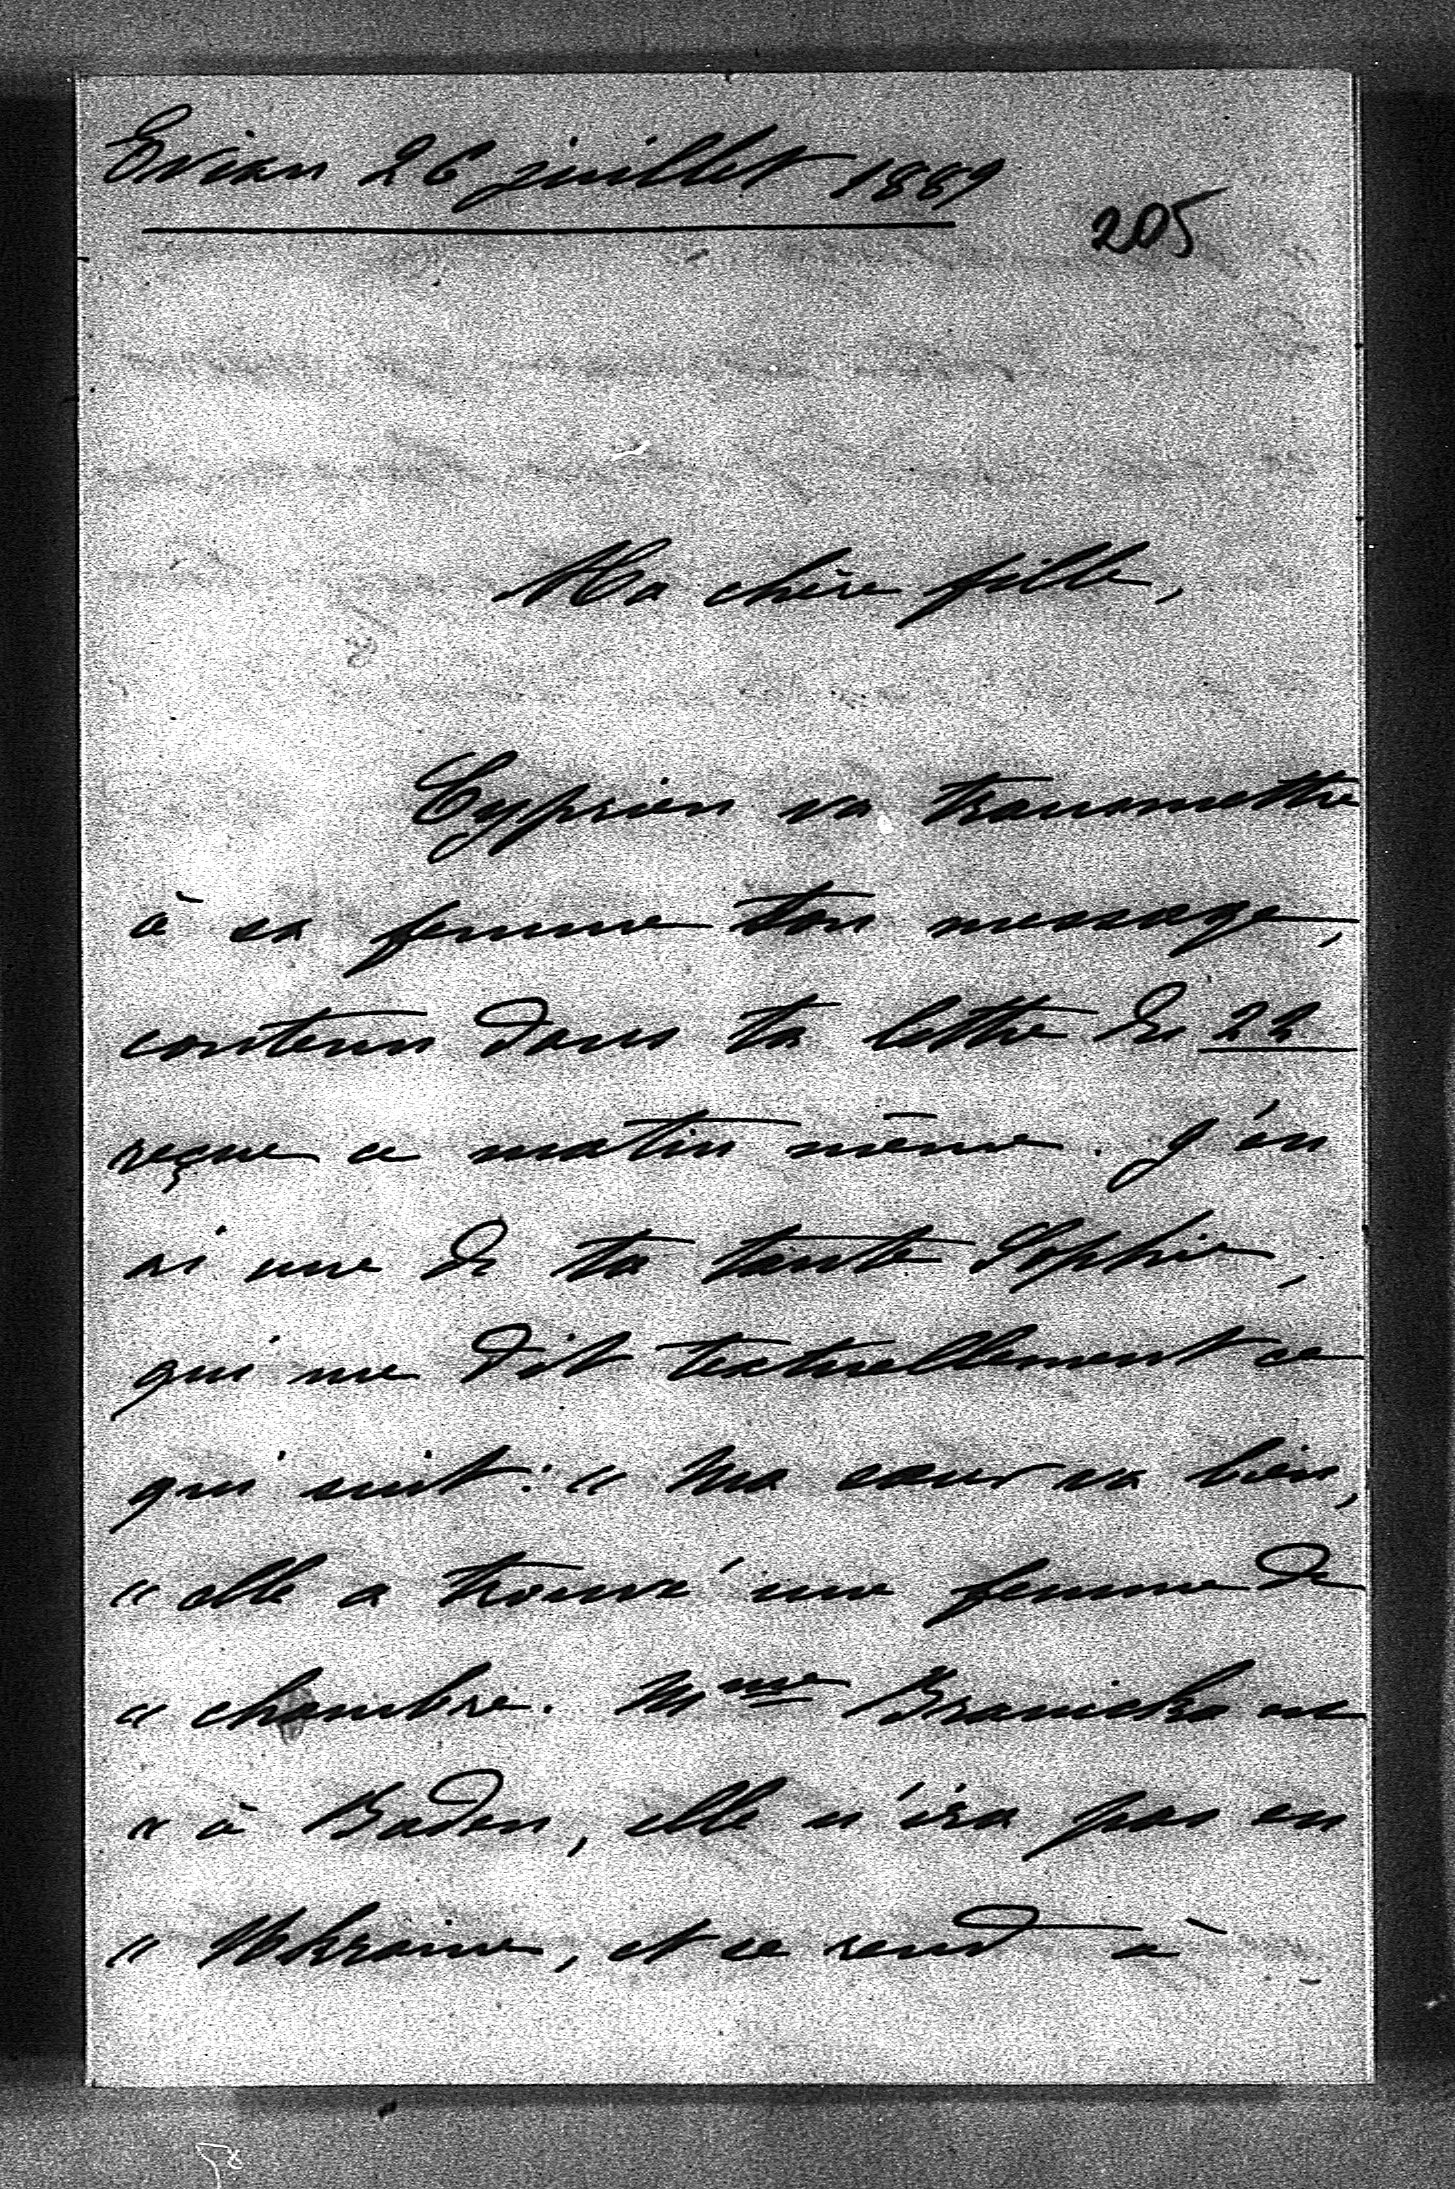 Evian 26 juillet 1889
205
Ma chère fille,
Cyprien va transmettre
à sa femme ton message,
contenu dans ta lettre du 22
reçue ce matin même. J'en
ai une de ta tante Sophie,
qui me dit textuellement ce
qui suit: « Ma sœur va bien,
« elle a trouvé une femme de
« chambre. Mme Branicka est
« à Baden, elle n'ira pas en
« Ukraine, et se rend à